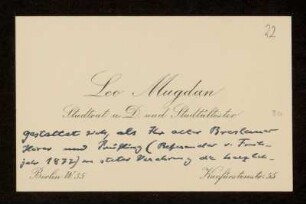 22
Leo Mugdan
Stadtrat a. D. und Stadtältester
gestattet sich, als Ihr alter Breslauer
Hörer und Prüfling (Referendar v. Früh-
jahr 1877) in steter Verehrung die herzlich-
Berlin W 35 Kurfürstenstr. 55